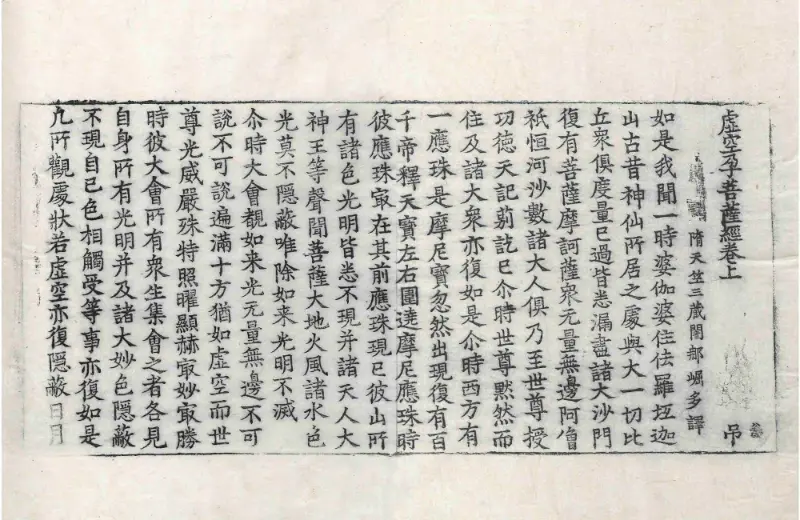 虛空孕菩薩經卷上　弔
隋天竺三藏闍那崛多譯
如是我聞一時婆伽婆住佉羅坻迦
山古昔神仙所居之處與大一切比
丘衆俱度量已過皆悉漏盡諸大沙門
復有菩薩摩訶薩衆无量無邊阿僧
祇恒河沙數諸大人俱乃至世尊授
功德天記莂訖已尒時世尊默然而
住及諸大衆亦復如是尒時西方有
一應珠是摩尼寶忽然出現復有百
千帝釋天寶左右圍遶摩尼應珠時
彼應珠㝡在其前應珠現已彼山所
有諸色光明皆悉不現并諸天人大
神王等聲聞菩薩大地火風諸水色
光莫不隱蔽唯除如来光明不滅
尒時大會覩如来光无量無邊不可
說不可說遍滿十方猶如虛空而世
尊光威嚴殊特照曜顯赫㝡妙㝡勝
時彼大會所有衆生集會之者各見
自身所有光明并及諸大妙色隱蔽
不現自己色相觸受等事亦復如是
凢所觀處狀若虛空亦復隱蔽日月